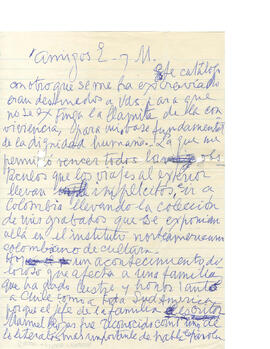 Amigos E. y M.
Este catálogo
con otro que se me ha extraviado
eran destinados a Vds. para que
no se extinga la llamita de la con
vivencia, para mi base fundamental
de la dignidad humana. La que me
permitió vencer todos los obs
táculos que los viajes al exterior
llevan implícitos, ir a
Colombia llevando la colección
de mis grabados que se exponían
allá en el instituto norteamericano
colombiano de cultura.
un acontecimiento do
loroso que afecta a una familia
que ha dado lustre y honor tanto
a Chile como a toda Sud América
porque el jefe de la familia escritor
Manuel Rojas fue reconocido como uno de
los literatos más importantes de habla española